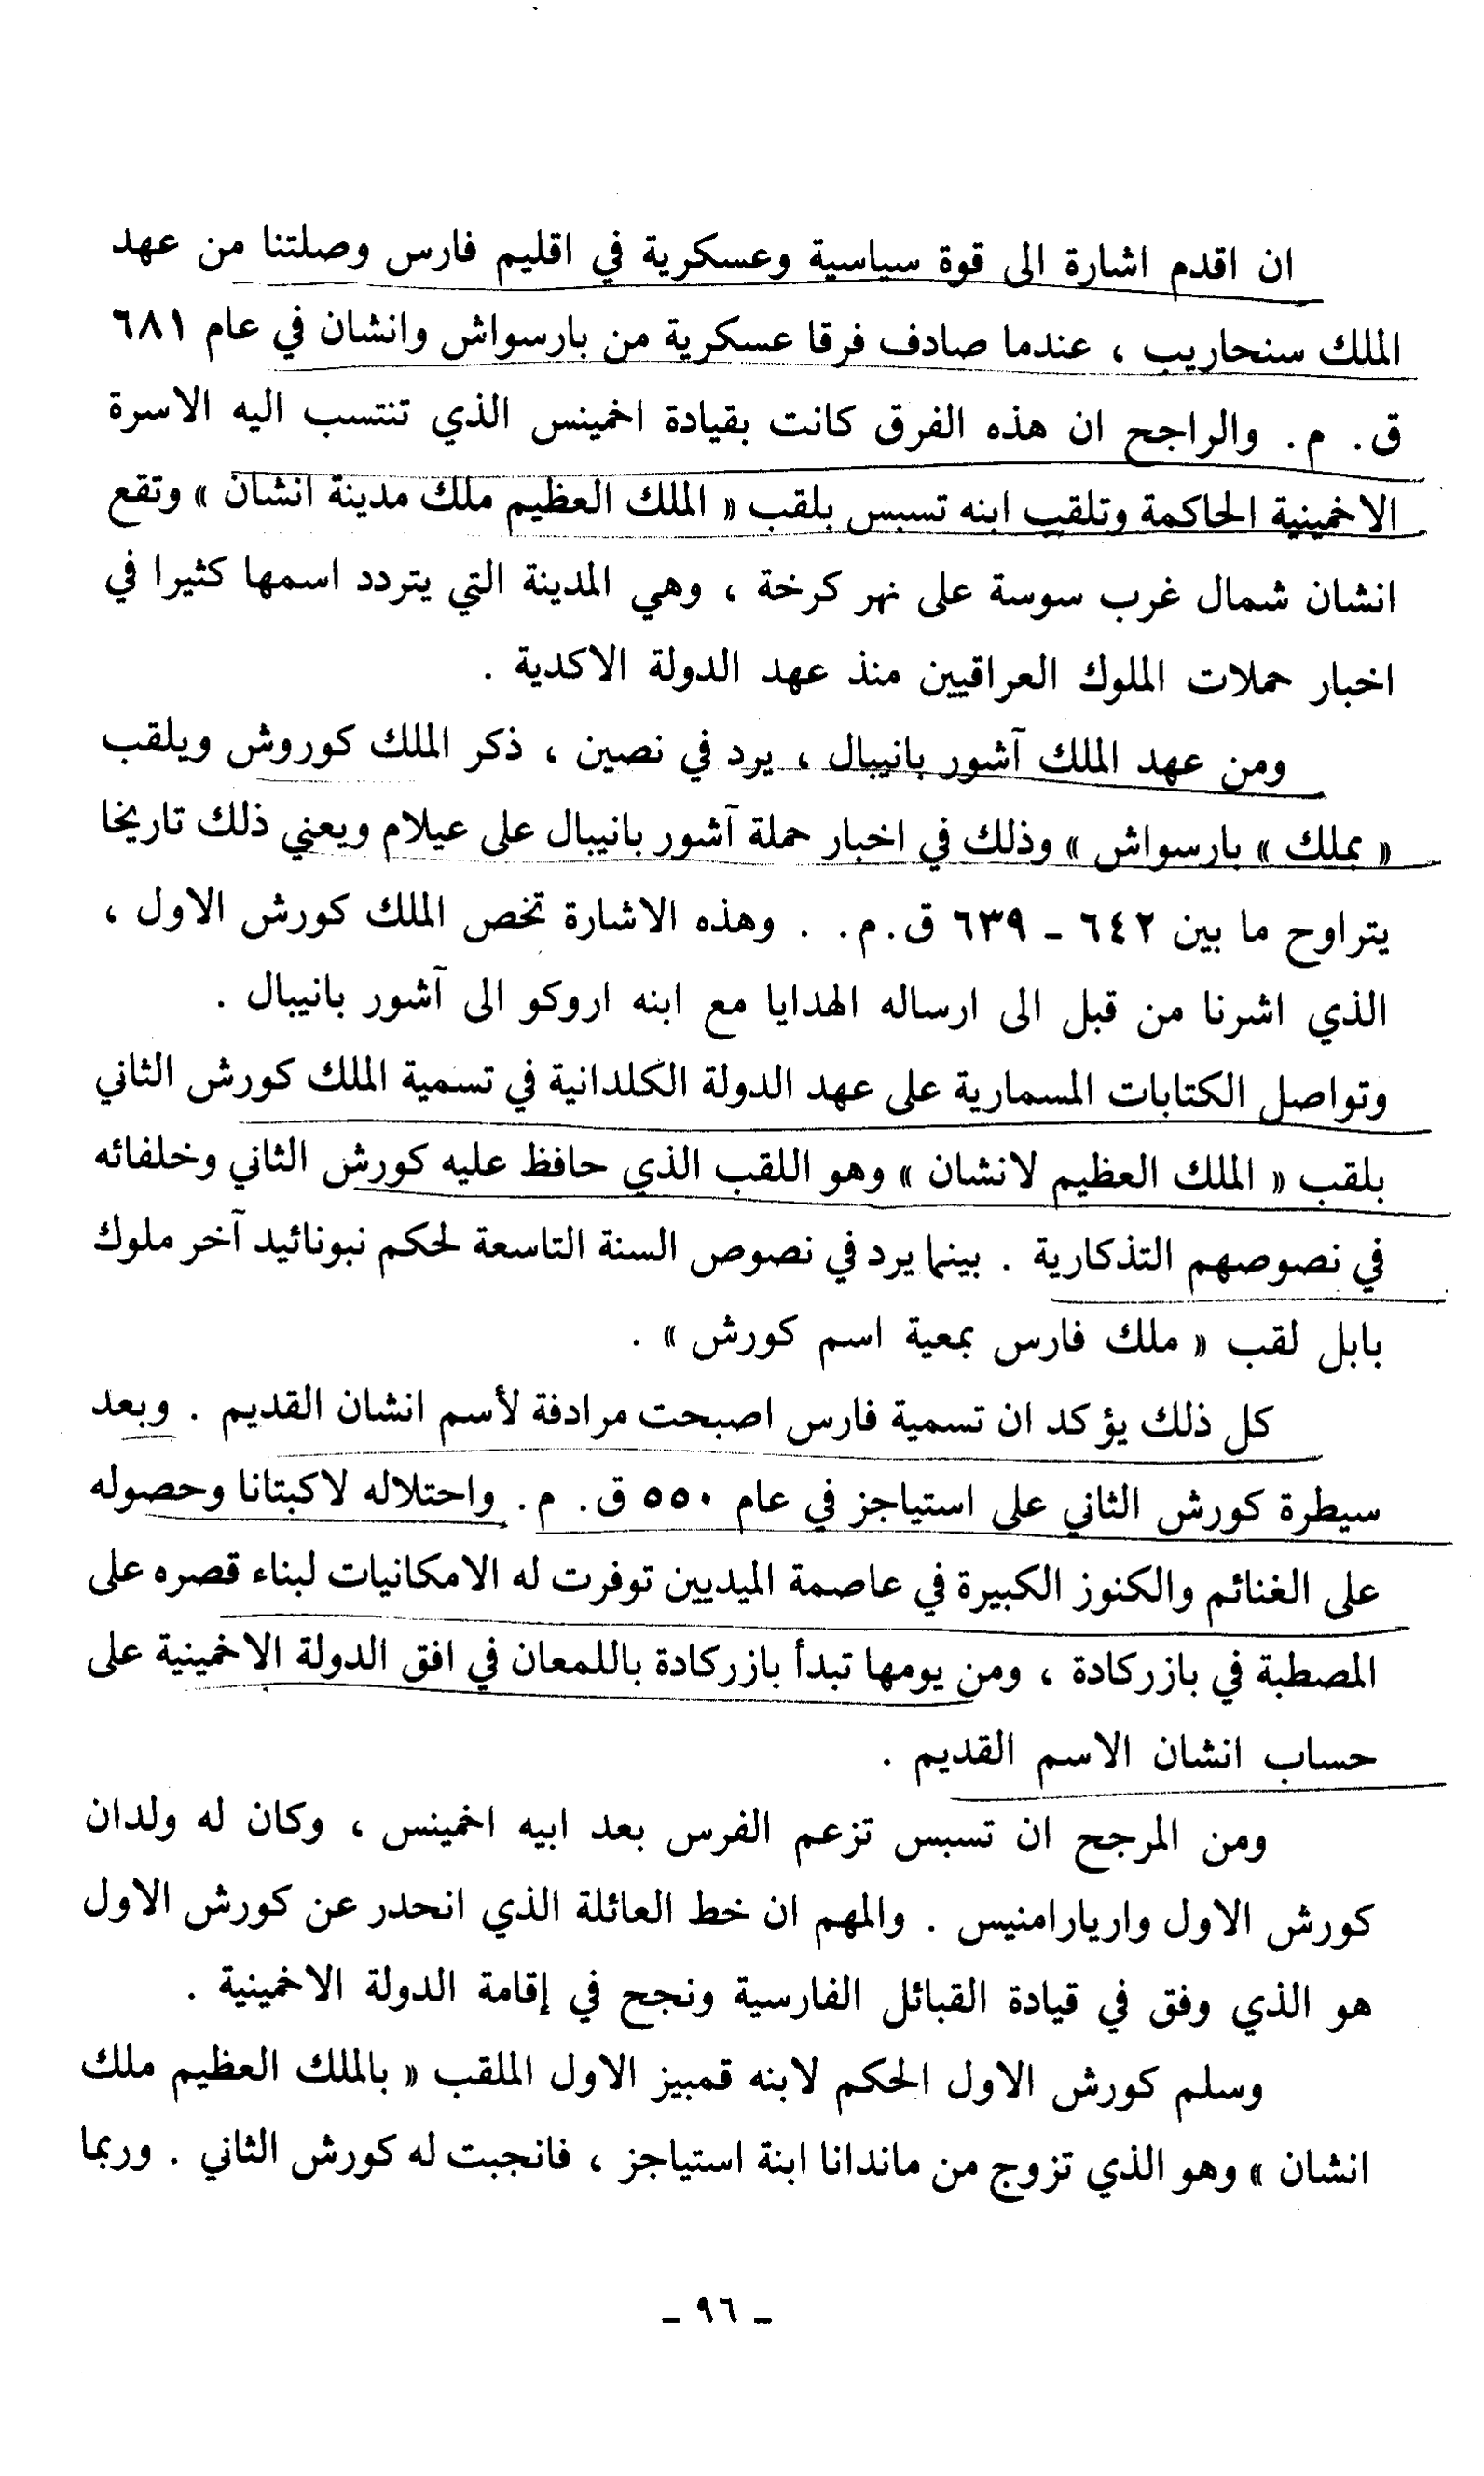 ان اقدم اشارة الى قوة سياسية وعسكرية في اقليم فارس وصلتنا من عهد
الملك سنحاريب ، عندما صادف فرقا عسكرية من بارسواش وانشان في عام ٦٨١
ق . م . والراجح ان هذه الفرق كانت بقيادة اخمينس الذي تنتسب اليه الاسرة
الاخمينية الحاكمة وتلقب ابنه تسبس بلقب « الملك العظيم ملك مدينة انشان » وتقع
انشان شمال غرب سوسة على نهر كرخة ، وهي المدينة التي يتردد اسمها كثيرا في
اخبار حملات الملوك العراقيين منذ عهد الدولة الاكدية .
ومن عهد الملك آشور بانيبال ، يرد في نصين ، ذكر الملك كوروش ويلقب
« بملك » بارسواش » وذلك في اخبار حملة آشور بانيبال على عيلام ويعني ذلك تاريخا
يتراوح ما بين ٦٤٢ - ٦٣٩ ق.م. . وهذه الاشارة تخص الملك كورش الاول ،
الذي اشرنا من قبل الى ارساله الهدايا مع ابنه اروكو الى آشور بانيبال .
وتواصل الكتابات المسمارية على عهد الدولة الكلدانية في تسمية الملك كورش الثاني
بلقب « الملك العظيم لانشان » وهو اللقب الذي حافظ عليه كورش الثاني وخلفائه
في نصوصهم التذكارية . بينما يرد في نصوص السنة التاسعة لحكم نبونائيد آخر ملوك
بابل لقب « ملك فارس بمعية اسم كورش » .
كل ذلك يؤكد ان تسمية فارس اصبحت مرادفة لأسم انشان القديم . وبعد
سيطرة كورش الثاني على استياجز في عام ٥٥٠ ق . م . واحتلاله لاكبتانا وحصوله
على الغنائم والكنوز الكبيرة في عاصمة الميديين توفرت له الامكانيات لبناء قصره على
المصطبة في بازركادة ، ومن يومها تبدأ بازركادة باللمعان في افق الدولة الاخمينية على
حساب انشان الاسم القديم .
ومن المرجح ان تسبس تزعم الفرس بعد ابيه اخمينس ، وكان له ولدان
كورش الاول واريارامنيس . والمهم ان خط العائلة الذي انحدر عن كورش الاول
هو الذي وفق في قيادة القبائل الفارسية ونجح في إقامة الدولة الاخمينية .
وسلم كورش الاول الحكم لابنه قمبيز الاول الملقب « بالملك العظيم ملك
انشان » وهو الذي تزوج من ماندانا ابنة استياجز ، فانجبت له كورش الثاني . وربما
- ٩٦ -